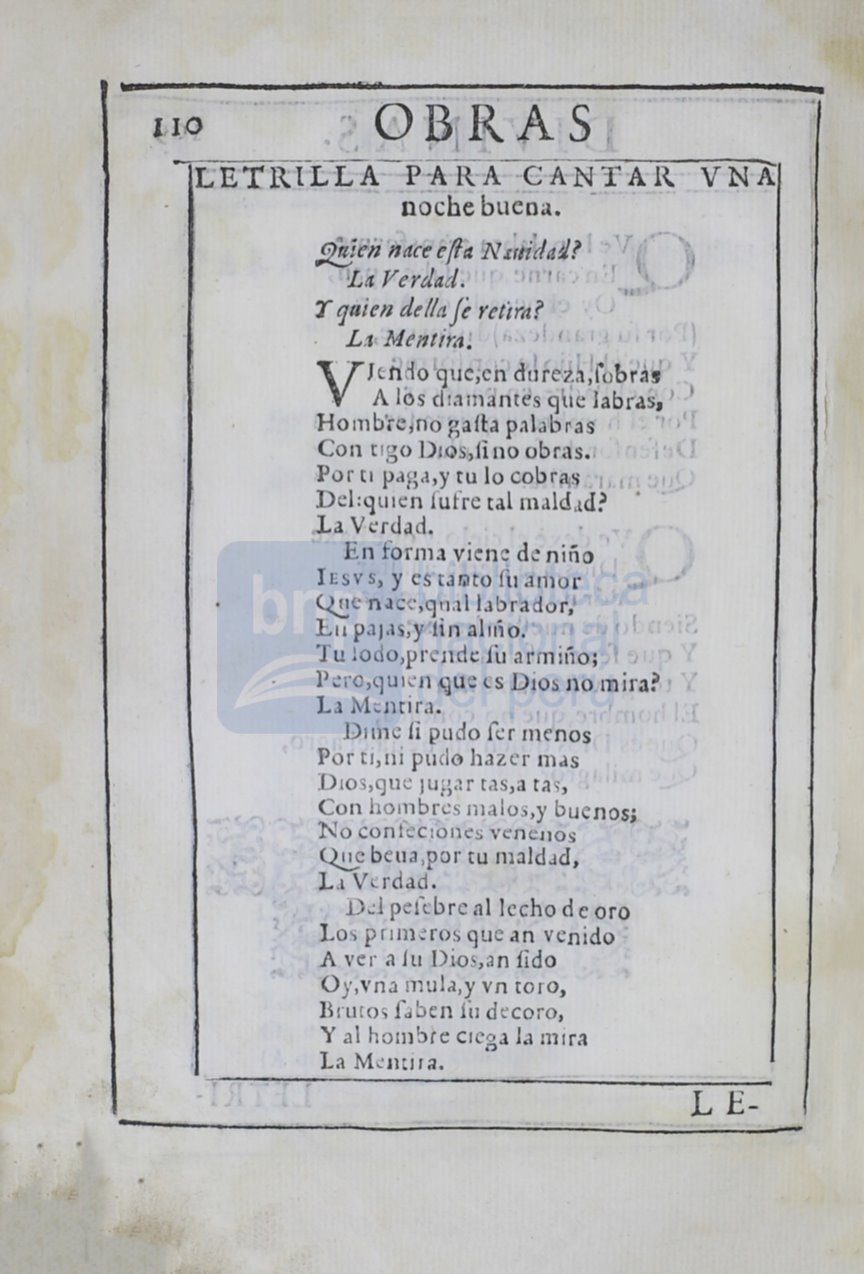 110 OBRAS
LETRILLA PARA CANTAR VNA
noche buena.
Quien nace esta Nauidad?
La Verdad.
Y quien della se retira?
La Mentira.
VIendo que,en dureza,sobras
A los diamantes que labras,
Hombre,no gasta palabras
Con tigo Dios,sino obras.
Por ti paga,y tu lo cobras
Del:quien sufre tal maldad?
La Verdad.
En forma viene de niño
IESVS, y es tanto su amor
Que nace,qual labrador,
En pajas,y sin aliño.
Tu lodo,prende su armiño;
Pero,quien que es Dios no mira?
La Mentira.
Dime si pudo ser menos
Por ti,ni pudo hazer mas
Dios,que jugar tas,a tas,
Con hombres malos,y buenos;
No confeciones venenos
Que beua,por tu maldad,
La Verdad.
Del pesebre al lecho de oro
Los primeros que an venido
A ver a su Dios,an sido
Oy,vna mula,y vn toro,
Brutos saben su decoro,
Y al hombre ciega la mira
La Mentira.
LE-
bnp biblioteca
nacional
del perú